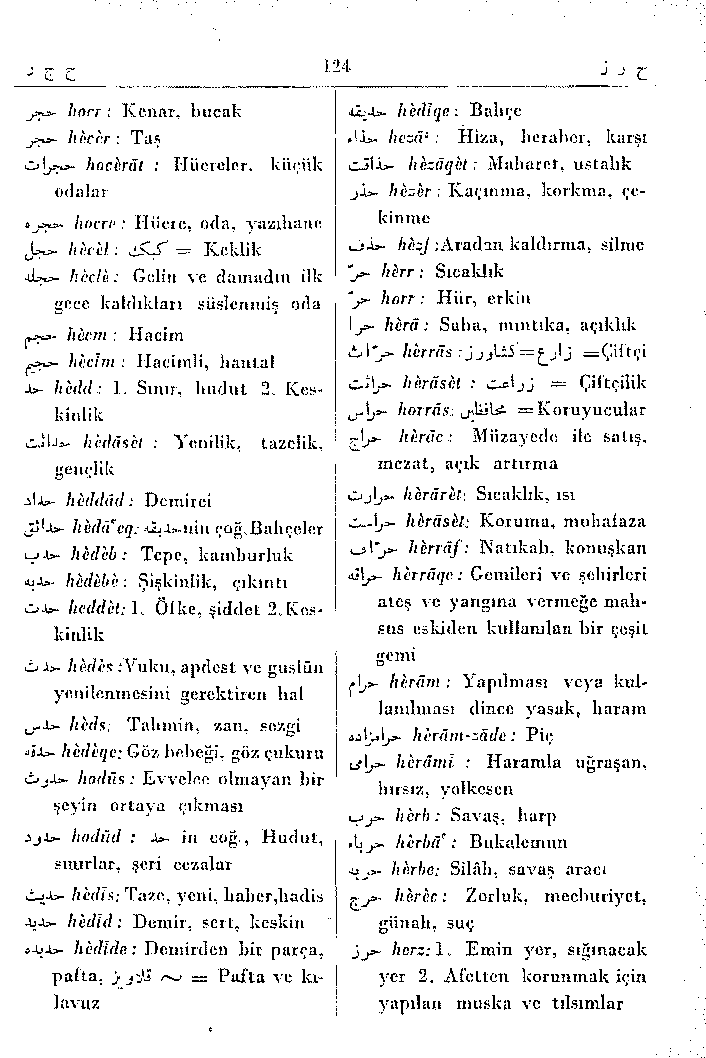 ح ج ر
124
ح ر ز
حجر horr : Kenar, bucak
حجر hècèr : Taş
حجرات hocèrāt : Hücreler, küçük
odalar
حجره hocre : Hücre, oda, yazıhane
حجل hècèl : كبك = Keklik
حجله hèclè : Gelin ve damadın ilk
gece kaldıkları süslenmiş oda
حجم hècm : Hacim
حجيم hècīm : Hacimli, hantal
حد hèdd : 1. Sınır, hudut 2. Kes-
kinlik
حداثت hèdāsèt : Yenilik, tazelik,
gençlik
حداد hèddād : Demirci
حدائق hèdā'eq: حديقه nin çoğ. Bahçeler
حدب hèdèb : Tepe, kamburluk
حدبه hèdèbè : Şişkinlik, çıkıntı
حدت heddèt: 1. Öfke, şiddet 2. Kes-
kinlik
حدث hèdès : Vuku, apdest ve guslün
yenilenmesini gerektiren hal
حدس hèds: Tahmin, zan, sezgi
حدقه hèdèqe: Göz bebeği, göz çukuru
حدوث hodūs : Evvelce olmayan bir
şeyin ortaya çıkması
حدود hodūd : حد in çoğ., Hudut,
sınırlar, şeri cezalar
حديث hèdīs; Taze, yeni, haber, hadis
حديد hèdīd : Demir, sert, keskin
حديده hèdīde : Demirden bir parça,
pafta, قلاويز ~ = Pafta ve kı-
lavuz
حديقه hèdīqe : Bahçe
حذاء hezā' : Hiza, beraber, karşı
حذاقت hèzāqèt : Maharet, ustalık
حذر hèzèr : Kaçınma, korkma, çe-
kinme
حذف hèzf : Aradan kaldırma, silme
حرّ hèrr : Sıcaklık
حرّ horr : Hür, erkin
حرا hèrā : Saha, mıntıka, açıklık
حرّاث hèrrās : زارع = كشاورز = Çiftçi
حراثت hèrāsèt : زراعت = Çiftçilik
حراس horrās: محافظين = Koruyucular
حراج hèrāc : Müzayede ile satış,
mezat, açık artırma
حرارت hèrārèt: Sıcaklık, ısı
حراست hèrāsèt: Koruma, muhafaza
حرّاف hèrrāf : Natıkalı, konuşkan
حراقه hèrrāqe : Gemileri ve şehirleri
ateş ve yangına vermeğe mah-
sus eskiden kullanılan bir çeşit
gemi
حرام hèrām : Yapılması veya kul-
lanılması dince yasak, haram
حرامزاده hèrām-zāde : Piç
حرامى hèrāmī : Haramla uğraşan,
hırsız, yolkesen
حرب hèrb : Savaş, harp
حرباء hèrbā' : Bukalemun
حربه hèrbe: Silâh, savaş aracı
حرج hèrèc : Zorluk, mecburiyet,
günah, suç
حرز herz: 1. Emin yer, sığınacak
yer 2. Afetten korunmak için
yapılan muska ve tılsımlar